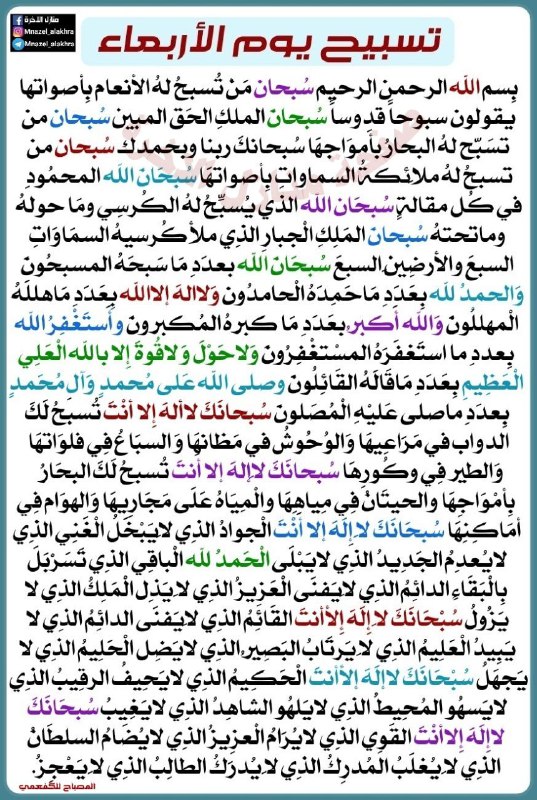 منازل الآخرة
Mnazel_alakhra
Mnazel_alakhra
تسبيح يوم الأربعاء
بِسم الله الرحمنِ الرحيمِ سُبحان مَنْ تُسبحُ لهُ الأنعام بِأصواتها
يقولون سبوحاً قدوساً سُبحان الملكِ الحَق المبين سُبحان من
تسَبّح له البحارُ بأمَوَاجهَا سُبحانكَ ربنا وبحمدك سُبحان من
تسبحُ لهُ ملائكةُ السماواتِ بأصواتهَا سُبحَانَ الله المحمُودِ
في كل مقالةٍ سُبحَان الله الذي يُسبِّحُ لهُ الكُرسِي وما حولهُ
وماتحتهُ سُبحانَ المَلِكِ الْجبارِ الذِي ملأ كُرسيهُ السمَاوَاتِ
السبعَ والأرضِين السبعَ سُبحَانَ الله بعدَدِ مَا سَبحَهُ المسبحُونَ
وَالحمدُ للهِ بِعدَدِ مَاحَمِدَهُ الْحامدُون وَلاالهَ إلاالله بِعَدَدِ مَاهللهُ
الْمهللُونَ وَالله أكبر بِعدَدِ مَا كبرهُ المُكبرونَ وأستَغْفِرُ الله
بعددِ ما استغفَرَهُ المستَغْفِرُون وَلاحَوْلَ وَلاقُوةَ إلا بالله العَلِي
الْعَظِيمِ بِعَدَدِ مَاقَالَهُ القَائلُونَ وصلى الله عَلى مُحمدٍ وَآل مُحَمدٍ
بِعدَدِ ماصلى عَليهِ الْمُصَلونَ سُبحانَكَ لاألهَ إلا أنْتَ تُسبحُ لَكَ
الدواب في مَرَاعِيهَا وَالوُحُوشُ في مَظانهَا وَ السبَاعُ في فلَوَاتهَا
وَالطير في وكُورِهَا سُبحانَكَ لاإلهَ إلا أنتَ تُسبحُ لكَ البحَارُ
بِأمْوَاجهَا والحيتَانُ في مِياهِهَا وَالمِيَاهُ عَلَى مَجَارِيهَا وَالهوَام في
أمَاكِنِهَا سُبحَانَكَ لاإلَهَ إلا أنْتَ الْجوادُ الذي لايَبْخَل الْغَنِي الذي
لايُعدِمُ الجَدِيدُ الذي لايَبْلَى الْحَمدُ لله الْباقِي الذِي تَسَرْبَلَ
بِالْبَقَاءِ الدائمُ الذِي لايَفنَى العَزِيزُ الذي لايَذِل المَلِكُ الذِي لا
يَزُولُ سُبْحَانَكَ لاإلَهَ إلاأنتَ القَائمُ الذِي لايَفنَى الدائمُ الذي لا
يَبيدُ الْعَليمُ الذي لايَرتَابُ البَصِير الذي لايَضل الْحَلِيمُ الذي لا
يَجهَلُ سُبْحَانَكَ لاإلَهَ إلاأنتَ الْحَكِيمُ الذِي لايَحِيف الرقيبُ الذي
لايَسهُو المُحِيطُ الذِي لايَلهُو الشاهدُ الذِي لايَغِيبُ سُبحَانَكَ
لاإلَهَ إلاأنْتَ القَوِي الذي لايُرَامُ العزيزُ الذي لايُضَامُ السلطَانُ
الذي لايُغْلَبُ المُدرِكُ الذي لايُدرَكُ الطالبُ الذي لايَعْجزُ.
المصباح للكفعمي